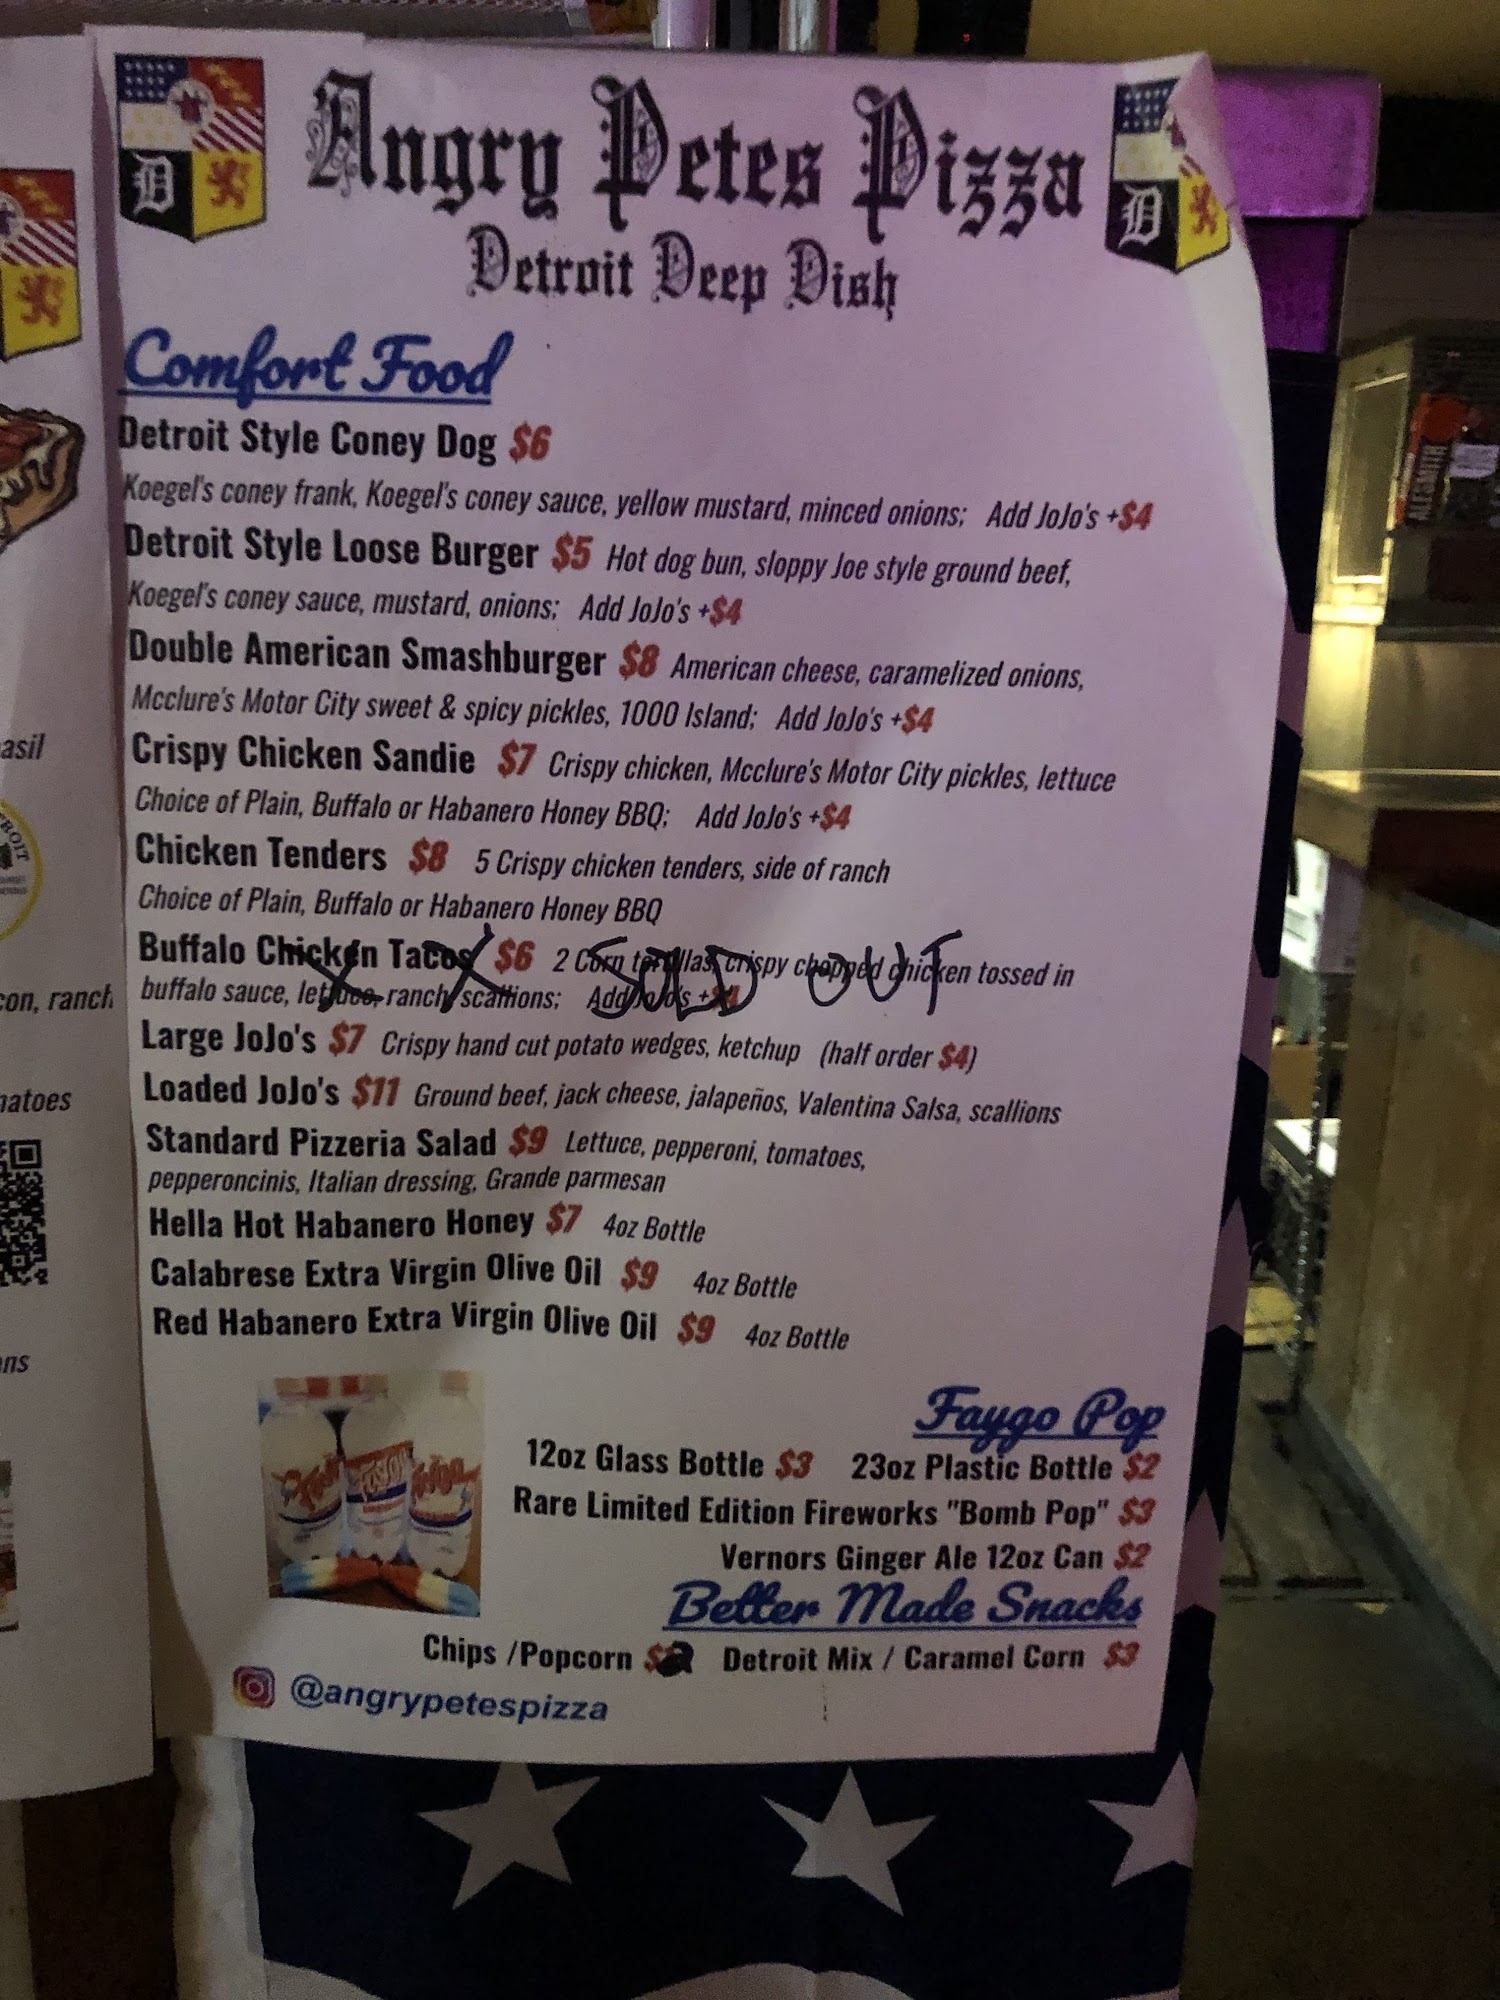 Angry Petes Pizza
Detroit Deep Dish
Comfort Food
Detroit Style Coney Dog $6
Koegel's coney frank, Koegel's coney sauce, yellow mustard, minced onions; Add JoJo's +$4
Detroit Style Loose Burger $5 Hot dog bun, sloppy Joe style ground beef,
Koegel's coney sauce, mustard, onions; Add JoJo's +$4
Double American Smashburger $8 American cheese, caramelized onions,
Mcclure's Motor City sweet & spicy pickles, 1000 Island; Add JoJo's +$4
Crispy Chicken Sandie $7 Crispy chicken, Mcclure's Motor City pickles, lettuce
Choice of Plain, Buffalo or Habanero Honey BBQ; Add JoJo's +$4
Chicken Tenders $8 5 Crispy chicken tenders, side of ranch
Choice of Plain, Buffalo or Habanero Honey BBQ
Buffalo Chicken Tacos $6 2 Corn tortillas, crispy chopped chicken tossed in
X X SOLD OUT
buffalo sauce, lettuce, ranch, scallions; Add JoJo's +$4
Large JoJo's $7 Crispy hand cut potato wedges, ketchup (half order $4)
Loaded JoJo's $11 Ground beef, jack cheese, jalapeños, Valentina Salsa, scallions
Standard Pizzeria Salad $9 Lettuce, pepperoni, tomatoes,
pepperoncinis, Italian dressing, Grande parmesan
Hella Hot Habanero Honey $7 4oz Bottle
Calabrese Extra Virgin Olive Oil $9 4oz Bottle
Red Habanero Extra Virgin Olive Oil $9 4oz Bottle
Faygo Pop
12oz Glass Bottle $3 23oz Plastic Bottle $2
Rare Limited Edition Fireworks "Bomb Pop" $3
Vernors Ginger Ale 12oz Can $2
Better Made Snacks
Chips /Popcorn $2 Detroit Mix / Caramel Corn $3
@angrypetespizza
D
D
asil
con, ranch
matoes
ns
ALESMITH